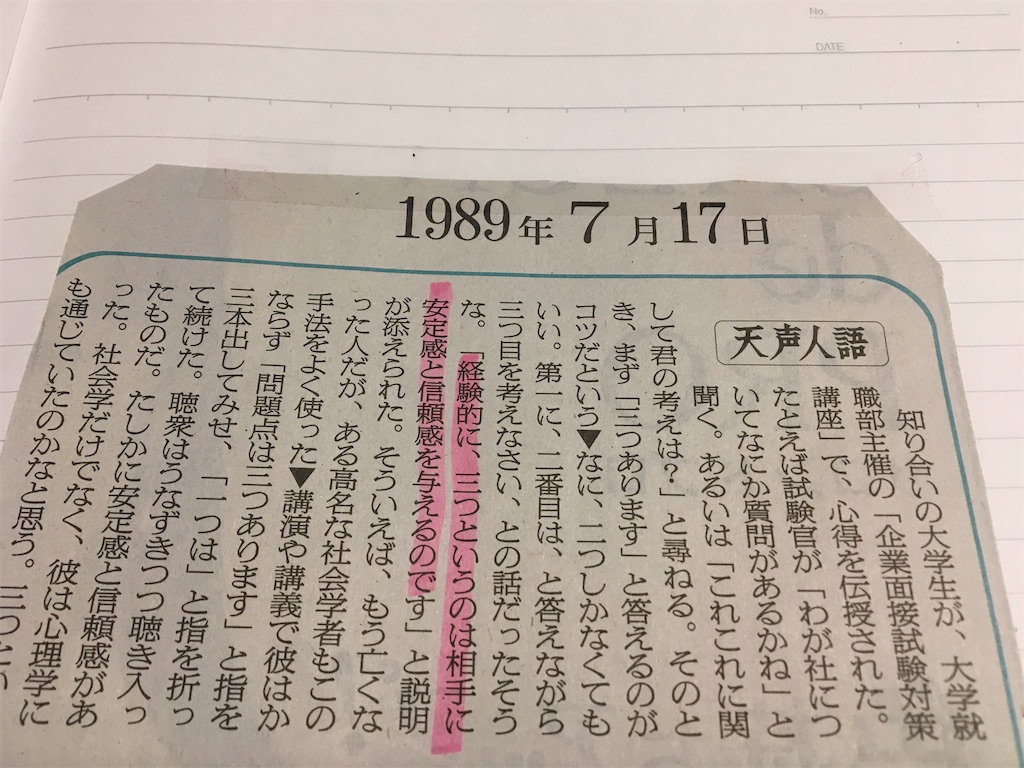 No.
DATE
1989年7月17日
天声人語
知り合いの大学生が、大学就
職部主催の「企業面接試験対策
講座」で、心得を伝授された。
たとえば試験官が「わが社につ
いてなにか質問があるかね」と
聞く。あるいは「これこれに関
して君の考えは？」と尋ねる。そのと
き、まず「三つあります」と答えるのが
コツだという▼なに、二つしかなくても
いい。第一に、二番目は、と答えながら
三つ目を考えなさい、との話だったそう
な。「経験的に、三つというのは相手に
安定感と信頼感を与えるのです」と説明
が添えられた。そういえば、もう亡くな
った人だが、ある高名な社会学者もこの
手法をよく使った▼講演や講義で彼はか
ならず「問題点は三つあります」と指を
三本出してみせ、「一つは」と指を折っ
て続けた。聴衆はうなずきつつ聴き入っ
たものだ。たしかに安定感と信頼感があ
った。社会学だけでなく、彼は心理学に
も通じていたのかなと思う。三つとい